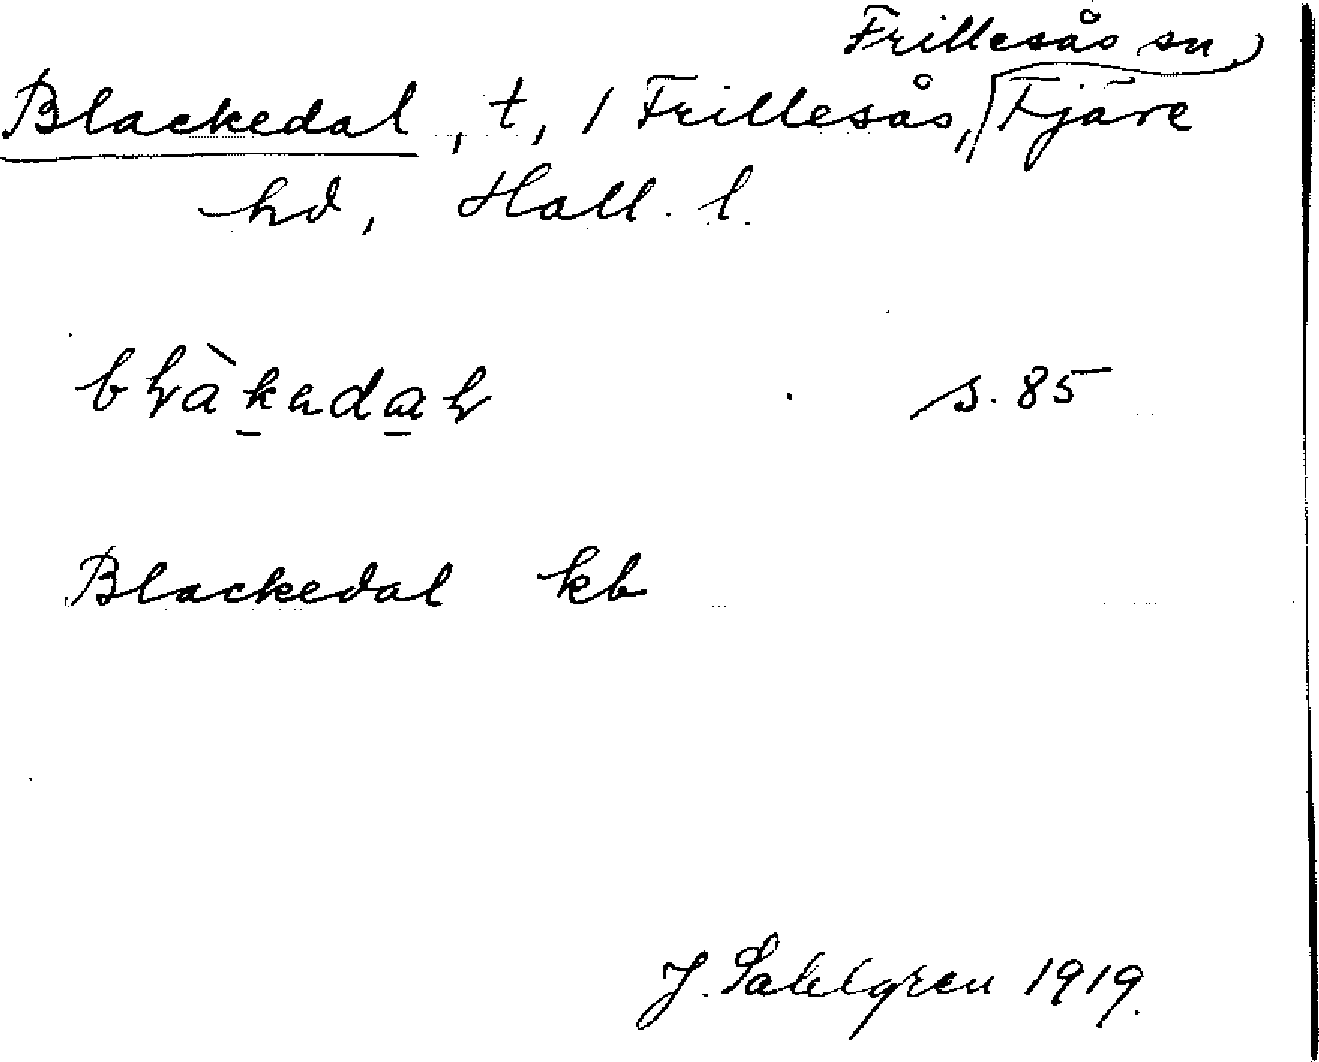 Frillesås sn,
Blackedal, t, 1 Frillesås, Fjäre
hd, Hall. l.
s. 85
Blackedal kb
J. Sahlgren 1919.